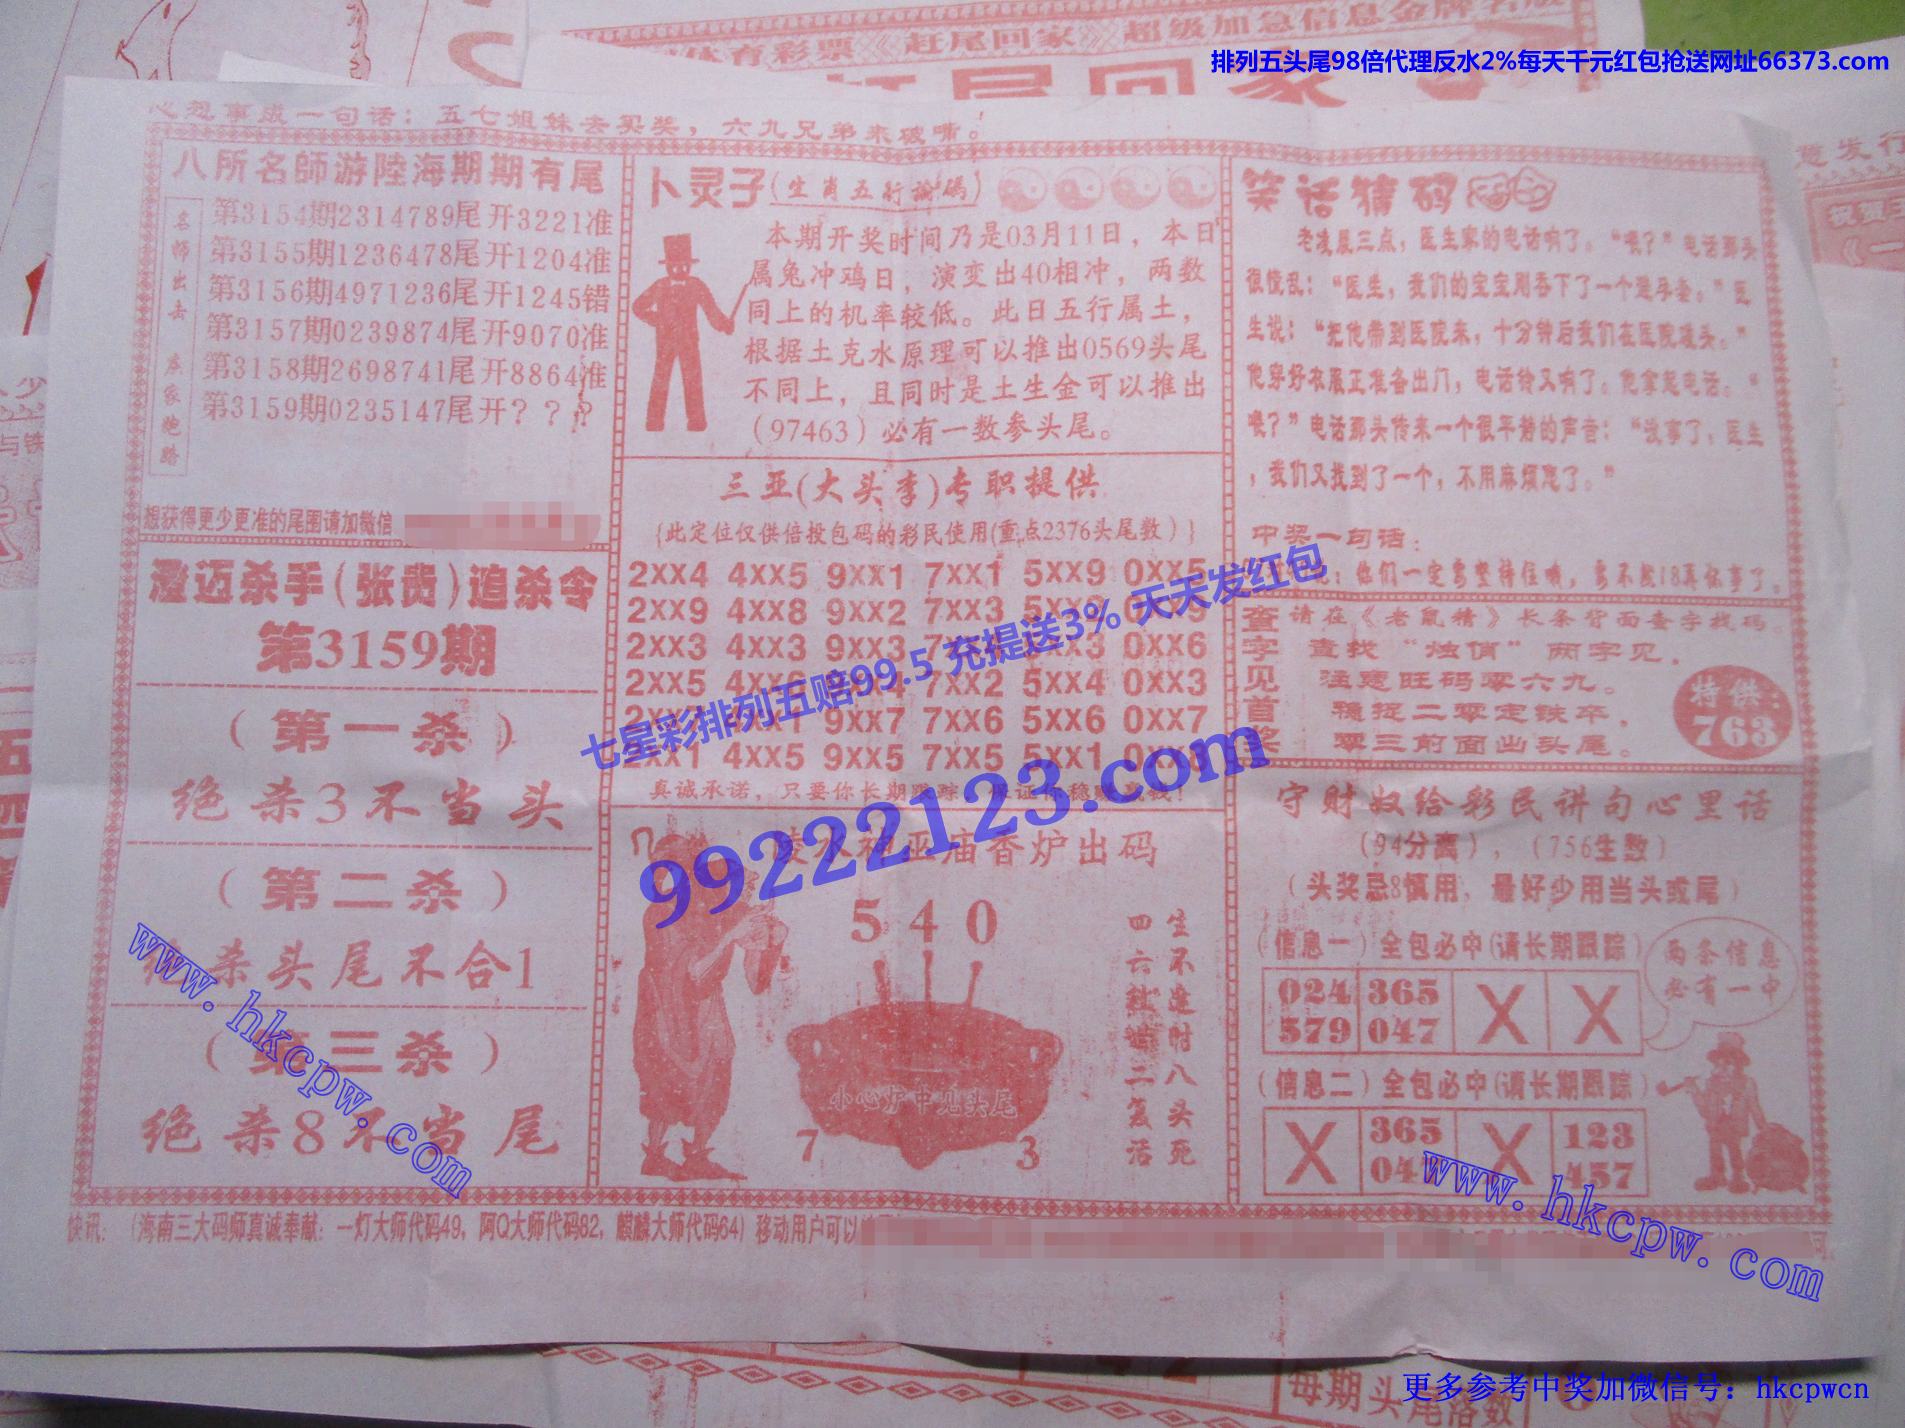 体育彩票《赶尾回家》超级加急信息金牌
排列五头尾98倍代理反水2%每天千元红包抢送网址66373.com
心想事成一句话：五七姐妹去买奖，六九兄弟来破嘴。
八所名師游陸海期期有尾
名师出击 庄家跑路
第3154期2314789尾开3221准
第3155期1236478尾开1204准
第3156期4971236尾开1245错
第3157期0239874尾开9070准
第3158期2698741尾开8864准
第3159期0235147尾开？？？
想获得更少更准的尾围请加微信
澄迈杀手(张贵)追杀令
第3159期
（第一杀）
绝杀3不当头
（第二杀）
绝杀头尾不合1
（第三杀）
绝杀8不当尾
卜灵子(生肖五行論碼)
本期开奖时间乃是03月11日，本日
属兔冲鸡日，演变出40相冲，两数
同上的机率较低。此日五行属土，
根据土克水原理可以推出0569头尾
不同上，且同时是土生金可以推出
（97463）必有一数参头尾。
三亚(大头李)专职提供
{此定位仅供倍投包码的彩民使用(重点2376头尾数）}
2XX4 4XX5 9XX1 7XX1 5XX9 0XX5
2XX9 4XX8 9XX2 7XX3
2XX3 4XX3 9XX3 0XX6
2XX5 7XX2 5XX4 0XX3
9XX7 7XX6 5XX6 0XX7
2XX1 4XX5 9XX5 7XX5 5XX1
真诚承诺，只要你长期跟踪，保证你稳赚
七星彩排列五赔99.5 充提送3% 天天发红包
99222123.com
陵水神巫庙香炉出码
5 4 0
小心炉中见头尾
7 3
生不逢时八头死
四六 二复活
笑话猜码
老凌晨三点，医生家的电话响了。“喂？”电话那头
很慌乱：“医生，我们的宝宝刚吞下了一个避孕套。”医
生说：“把他带到医院来，十分钟后我们在医院碰头。”
他穿好衣服正准备出门，电话铃又响了。他拿起电话。“
喂？”电话那头传来一个很平静的声音：“没事了，医生
，我们又找到了一个，不用麻烦您了。”
中奖一句话：
你们一定要坚持住哦，
查字见首奖
请在《老鼠精》长条背面查字找码。
查找“烛俏”两字见，
注意旺码零六九。
稳捉二零定铁卒，
零三前面出头尾。
特供：
763
守财奴给彩民讲句心里话
（94分离），（756生数）
（头奖忌8慎用，最好少用当头或尾）
（信息一）全包必中(请长期跟踪)
024 365 X X
579 047
两条信息
必有一中
（信息二）全包必中(请长期跟踪)
X 365 X 123
04 457
快讯：（海南三大码师真诚奉献：一灯大师代码49，阿Q大师代码82，麒麟大师代码64）移动用户可以
www.hkcpw.com
www.hkcpw.com
每期头尾
更多参考中奖加微信号：hkcpwcn